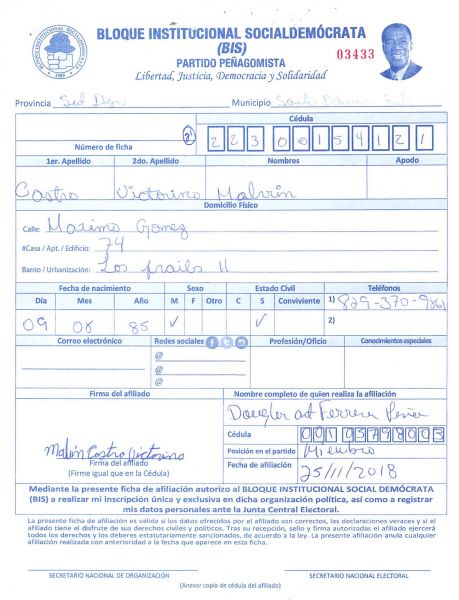 BLOQUE INSTITUCIONAL SOCIALDEMÓCRATA
(BIS)
03433
PARTIDO PEÑAGOMISTA
Libertad, Justicia, Democracia y Solidaridad
Provincia Municipio
Cédula
Número de ficha 223 0015412 1
1er. Apellido 2do. Apellido Nombres Apodo
Castro Victorino
Domicilio Físico
Calle: Maximo Gomez
#Casa / Apt. / Edificio: 74
Barrio / Urbanización: Los frails II
Fecha de nacimiento Sexo Estado Civil Teléfonos
Día Mes Año M F Otro C S Conviviente 1) 829-370-9861
09 08 85 ✓ ✓ 2)
Correo electrónico Redes sociales Profesión/Oficio Conocimientos especiales
@
@
@
Firma del afiliado Nombre completo de quien realiza la afiliación
Ferrera
Cédula
Castro Victorino
Firma del afiliado Posición en el partido Miembro
(Firme igual que en la Cédula) Fecha de afiliación 25/11/2018
Mediante la presente ficha de afiliación autorizo al BLOQUE INSTITUCIONAL SOCIAL DEMÓCRATA
(BIS) a realizar mi inscripción única y exclusiva en dicha organización política, así como a registrar
mis datos personales ante la Junta Central Electoral.
La presente afiliación es válida si los datos ofrecidos por el afiliado son correctos, las declaraciones veraces y si el
afiliado tiene el disfrute de sus derechos civiles y políticos. Tras su recepción, sello y firma autorizadas el afiliado ejercerá
todos los derechos y los deberes estatutariamente sancionados, de acuerdo a la ley. La presente afiliación anula cualquier
afiliación realizada con anterioridad a la fecha que aparece en esta ficha.
SECRETARIO NACIONAL DE ORGANIZACIÓN SECRETARIO NACIONAL ELECTORAL
(Anexar copia de cédula del afiliado)